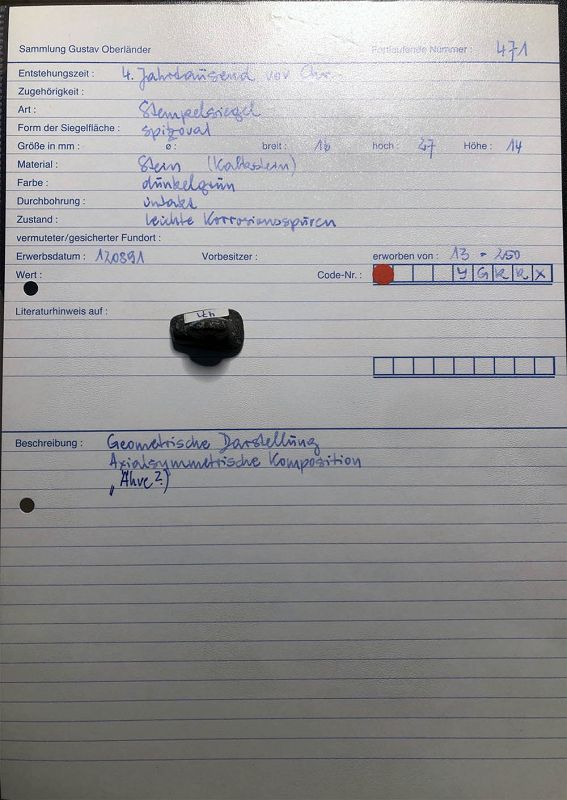 Sammlung Gustav Oberländer Fortlaufende Nummer : 471
Entstehungszeit : 4. Jahrtausend vor Chr.
Zugehörigkeit :
Art : Stempelsiegel
Form der Siegelfläche : spitzoval
Größe in mm : ø : breit : 16 hoch : 27 Höhe : 14
Material : Stein (Kalkstein)
Farbe : dunkelgrün
Durchbohrung : intakt
Zustand : leichte Korrosionsspuren
vermuteter/gesicherter Fundort :
Erwerbsdatum : 120891 Vorbesitzer : erworben von : 13 - 250
Wert : Code-Nr. : Y G K K X
Literaturhinweis auf :
471
Beschreibung : Geometrische Darstellung
Axialsymmetrische Komposition
„Ähre?)